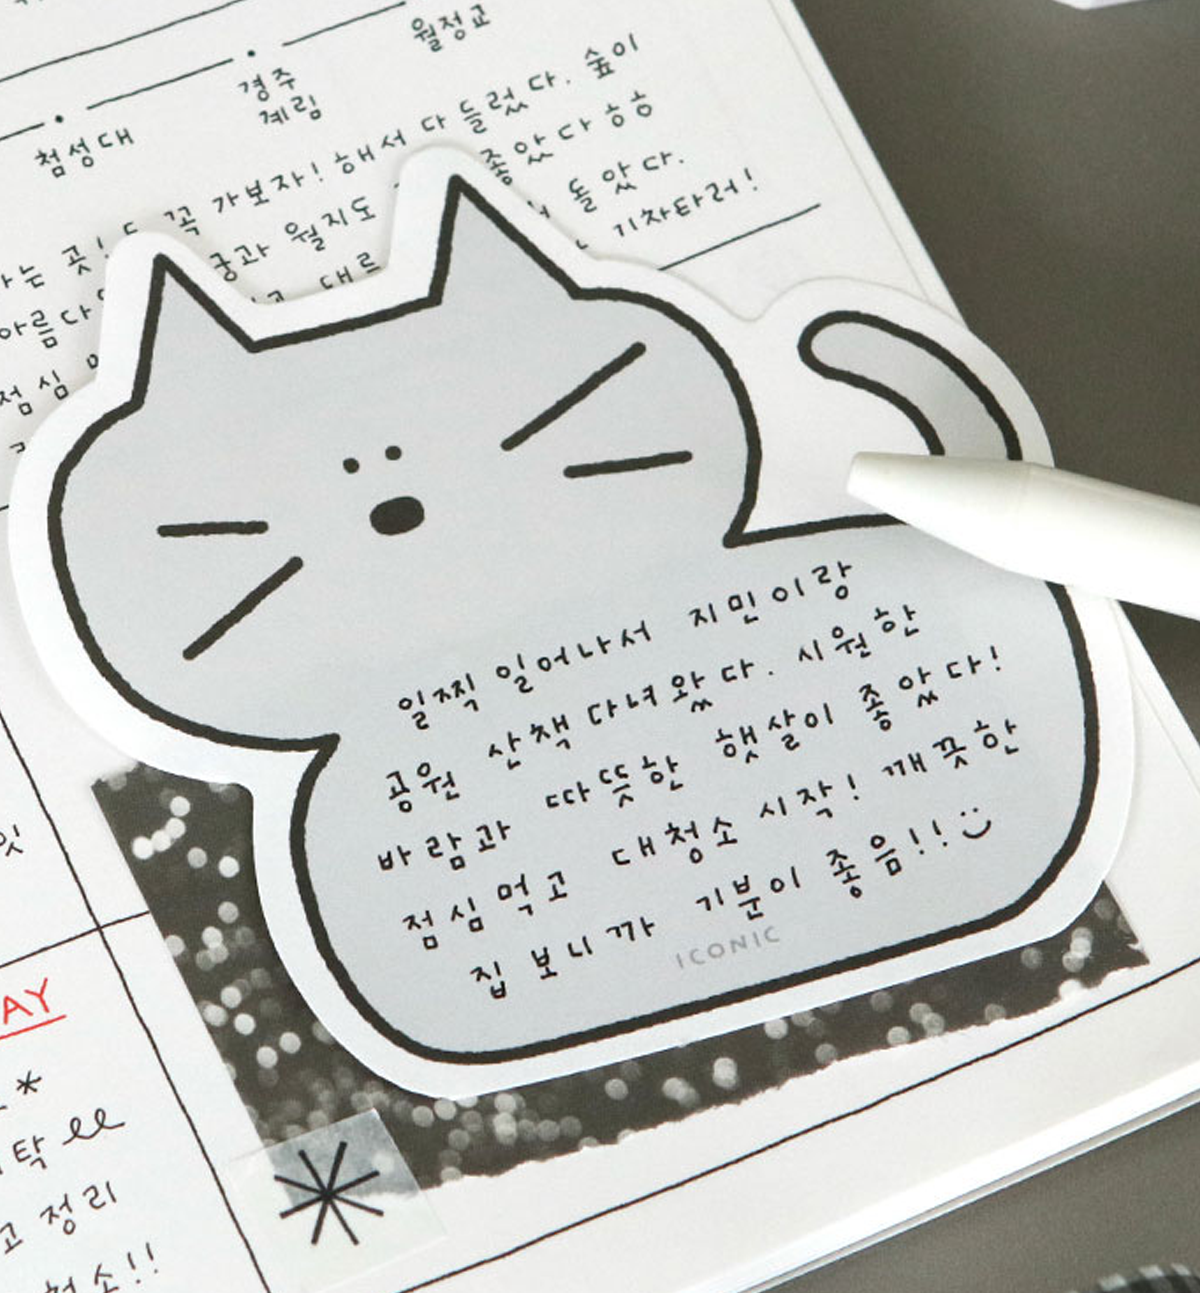 월정교
경주
계림
첨성대
꼭 가보자! 해서 다 들렀다. 숲이
월지도 좋았다 ㅎㅎ
돌았다.
기차타러!
점심
일찍 일어나서 지민이랑
공원 산책 다녀왔다. 시원한
바람과 따뜻한 햇살이 좋았다!
점심먹고 대청소 시작! 깨끗한
집 보니까 기분이 좋음!!
ICONIC
정리